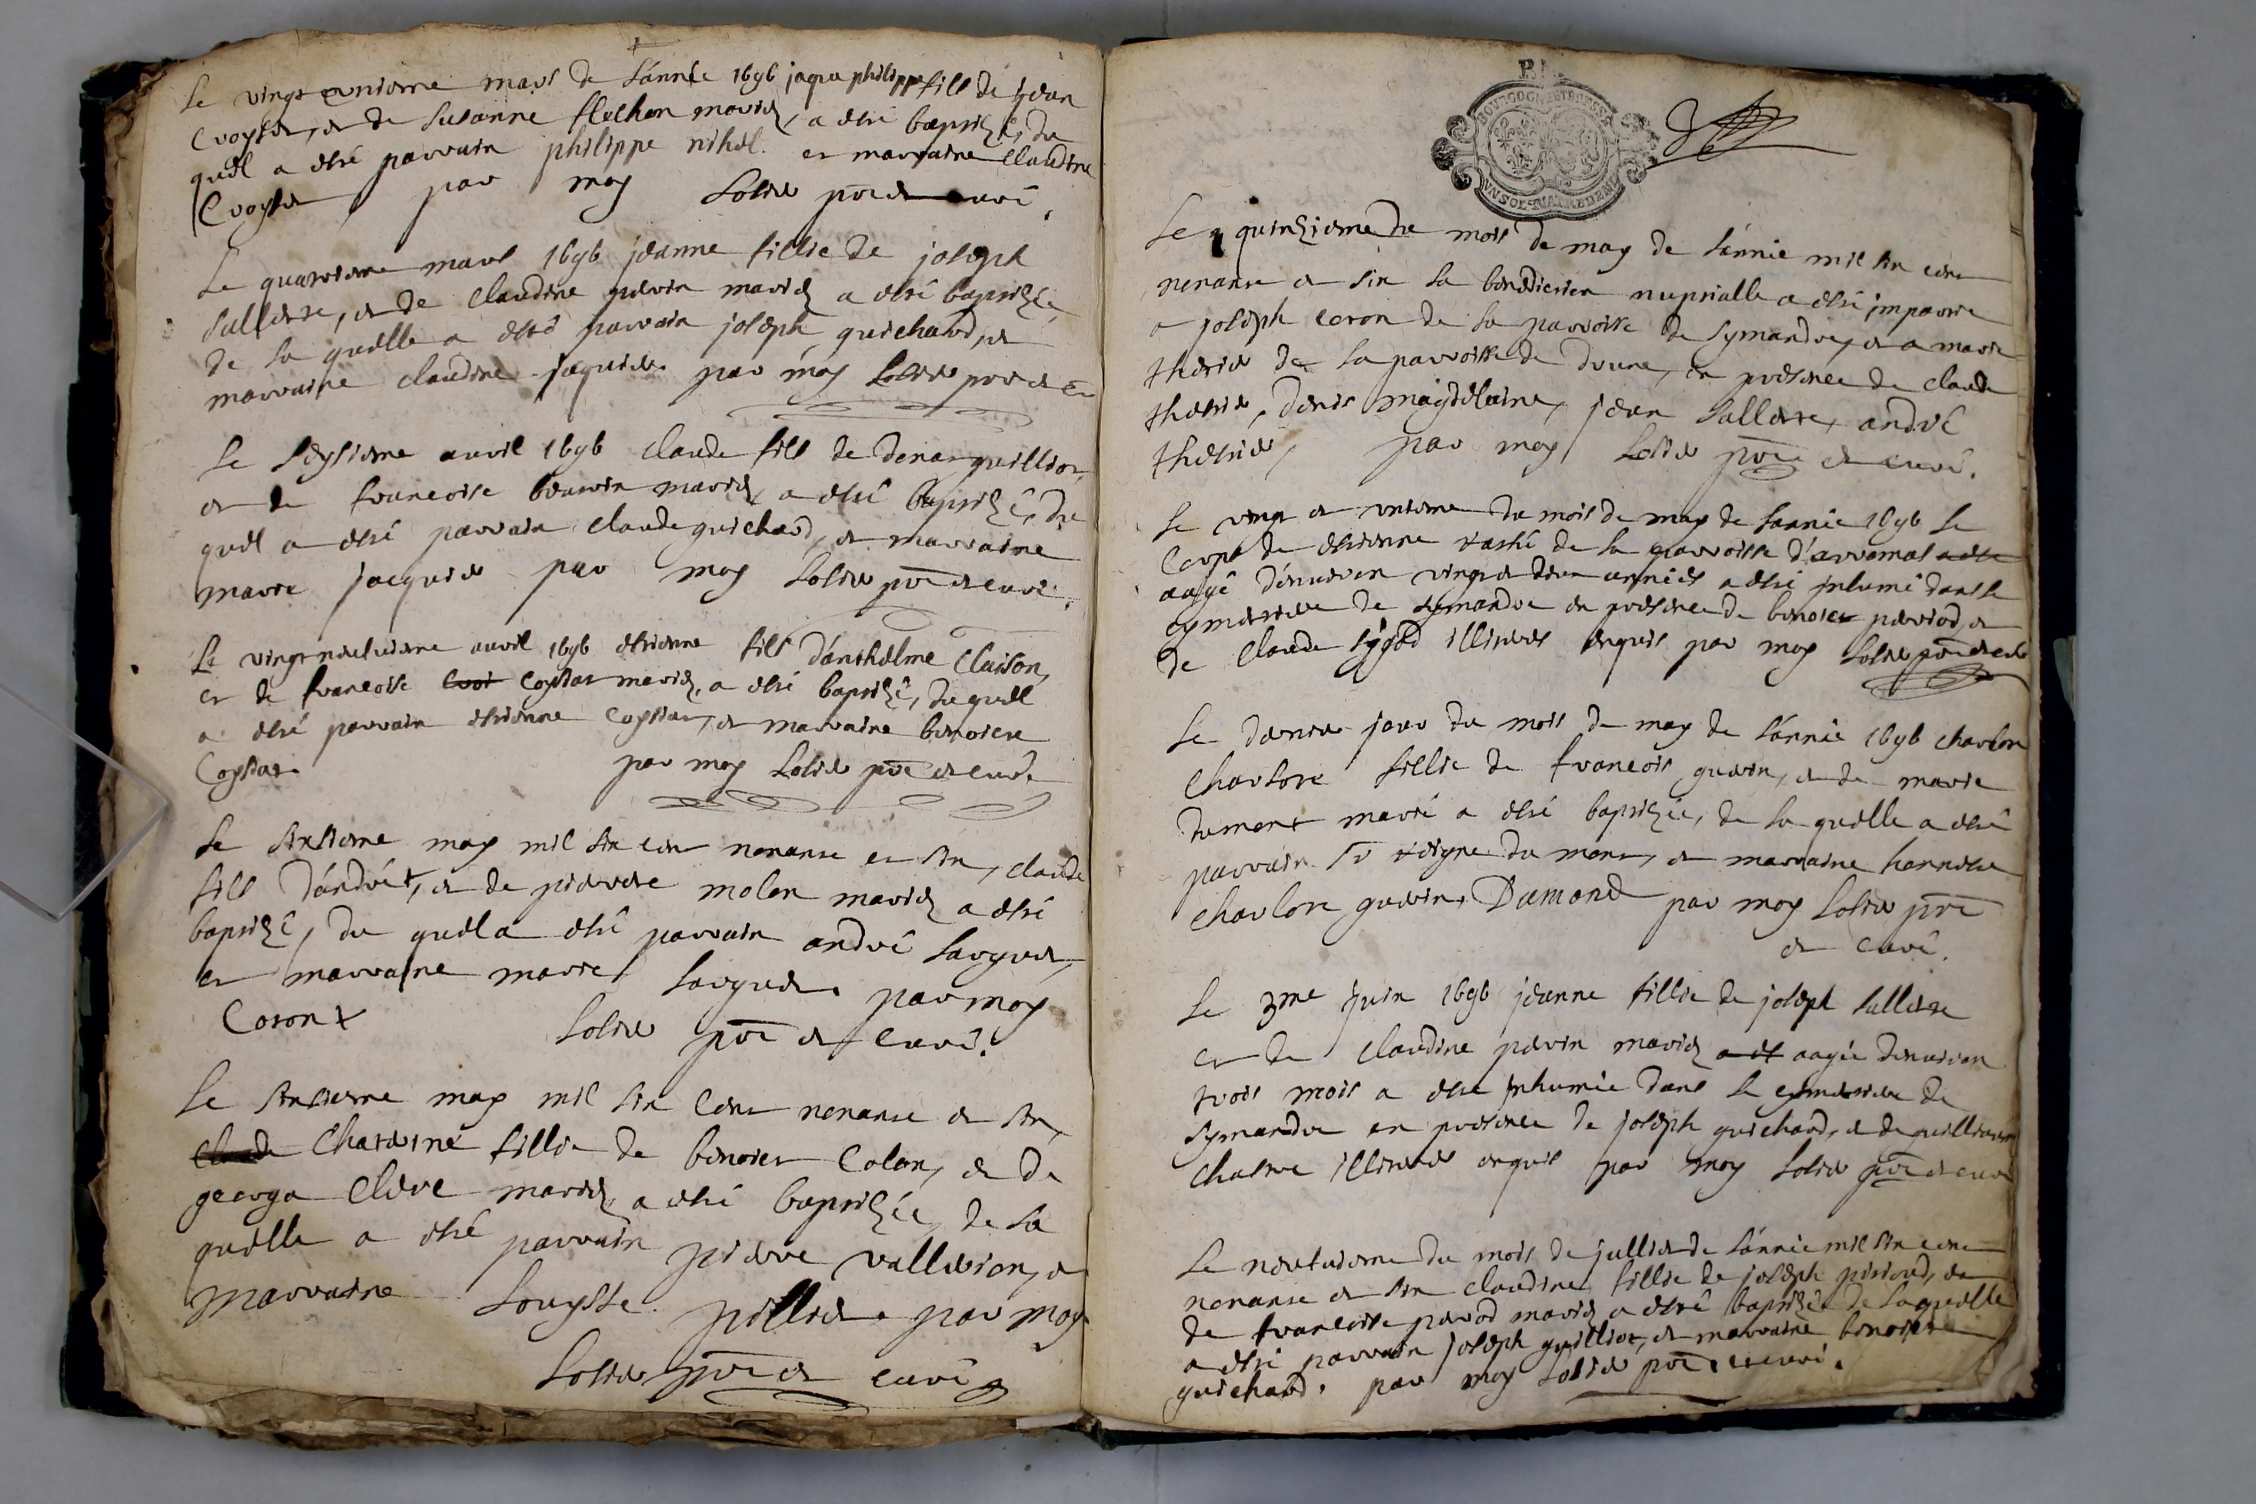 Le vingt onsieme mars de l'annee 1696 jaque philippe fils de jean
Croyset, et de susanne flechon mariez, a esté baptizé, du
quel a esté parrain philippe nihel. et marraine claudine
Croyset par moy Solier pbre et curé.
Le quatrieme mars 1696 jeanne fillie de joseph
sallesse, et de claudine perrin mariez a esté baptizée
de la quelle a esté parrain joseph guichard, et
marraine claudine jaquier. par moy Solier pbre et
Le septieme avril 1696 claude fils de denar guilliot,
et de francoise mariez, a esté baptizé, du
quel a esté parrain claude guichard, et marraine
marie jacquier par moy Solier pbre et curé.
Le vingt neufvieme avril 1696 estienne fils d'anthelme Claison,
et de francoise Coystar mariez, a esté baptizé, du quel
a esté parrain estienne Coystar, et marraine benoiste
Coystar. par moy Solier pbre et curé
Le sixsieme may mil six cent nonante et six, claude
fils d'andré +, et de pierrete molon mariez a esté
baptizé, du quel a esté parrain andré sarguet,
et marraine marie sarguet. par moy
Coron + Solier pbre et curé.
Le sixsieme may mil six cent nonante et six,
Chaterine fillie de benoist Colon, et de
georga Clere mariez, a esté baptizée, de la
quelle a esté parrain pierre vallerion, et
marraine Louysse pilliet. par moy
Solier pbre et curé
BOURGOGNE ET BRESSE
UN SOL QUATRE DEN
Le quinzieme du mois de may de l'année mil six cent
nonante et six la benediction nuptialle a esté impartie
a joseph coron de la parroisse de symandre, et a marie
thesnier de la parroisse de drune, en presence de claude
thesnier, denis magdelaine, jean sallesse, andré
thesnier, par moy Solier pbre et curé.
Le vingt et unieme du mois de may de l'annee 1696 le
Corps de estienne tashé de la parroisse d'arromas
aagé d'environ vingt et deux années a esté inhumé dans le
cymetiere de symandre en presence de benoist perriod, et
de claude sygod illiteres enquis par moy Solier pbre et curé
Le dernier jour du mois de may de l'année 1696
charlote fillie de francois guerin, et de marie
dumont marié a esté baptizée, de la quelle a esté
parrain Sr du mont, et marraine
charlote guerin. Dumond par moy Solier pbre
et curé.
Le 3me juin 1696 jeanne fillie de joseph sallesse
et de claudine perrin mariez aagée d'environ
trois mois a esté inhumée dans le cymetiere de
symandre en presence de joseph guichard, et de
chastre illiteres enquis par moy Solier pbre et curé
Le neufvieme du mois de jullier de l'année mil six cent
nonante et six claudine fillie de joseph pirioud, et
de francoise perrod mariez a esté baptizée de la quelle
a esté parrain joseph guilliot, et marraine benoiste
guichard. par moy Solier pbre et curé.